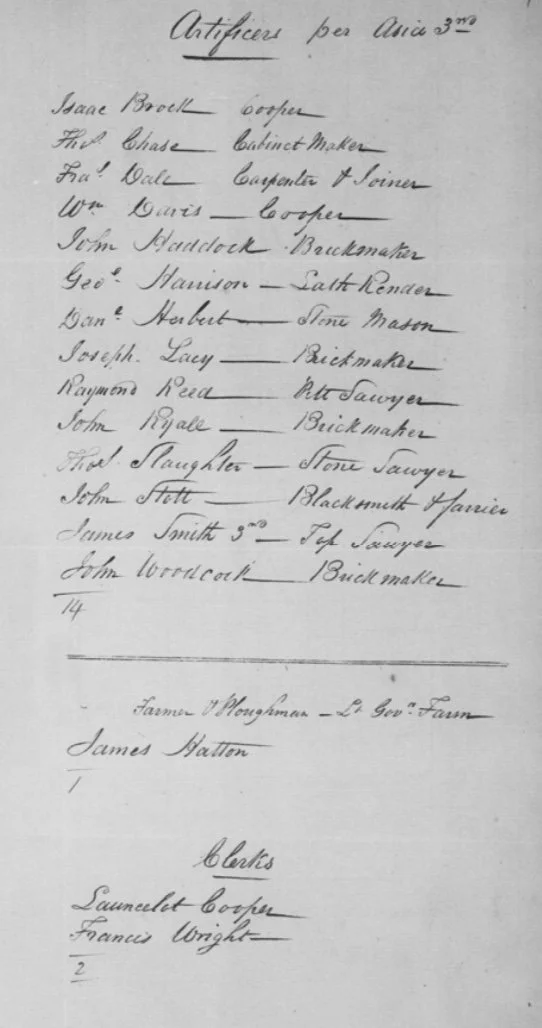 Artificers per Asia 3rd
Isaac Brock Cooper
Thos. Chase Cabinet Maker
Fras. Dale Carpenter & Joiner
Wm Davis Cooper
John Haddock Brickmaker
Geoe. Harrison Lath Render
Dane. Herbert Stone Mason
Joseph Lacy Brickmaker
Raymond Reed Pitt Sawyer
John Ryale Brickmaker
Thos. Slaughter Stone Sawyer
John Stott Blacksmith & farrier
James Smith 3rd Top Sawyer
John Woodcock Brickmaker
14
Farmer & Ploughman - Lt Govn. Farm
James Hatton
1
Clerks
Launcelot Cooper
Francis Wright
2